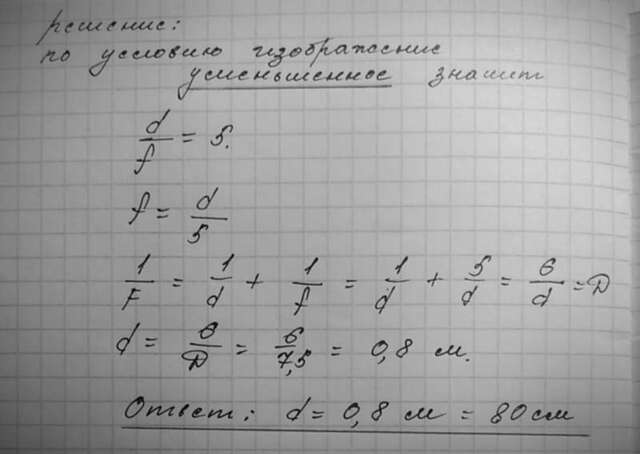 решение:
по условию изображение
уменьшенное значит
d/f = 5.
f = d/5
1/F = 1/d + 1/f = 1/d + 5/d = 6/d = D
d = 6/D = 6/7,5 = 0,8 м.
Ответ: d = 0,8 м = 80 см